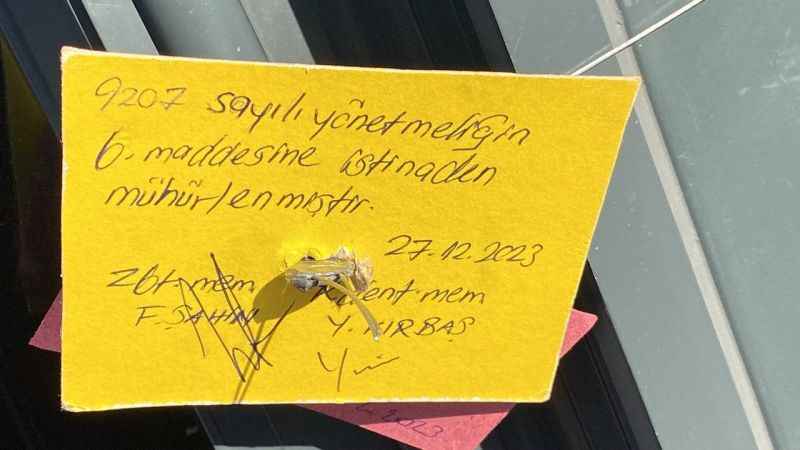 9207 sayılı yönetmeliğin
6. maddesine istinaden
mühürlenmiştir.
27.12.2023
Zbt. mem
F. ŞAHİN
mem
Y. KIRBAŞ
2023